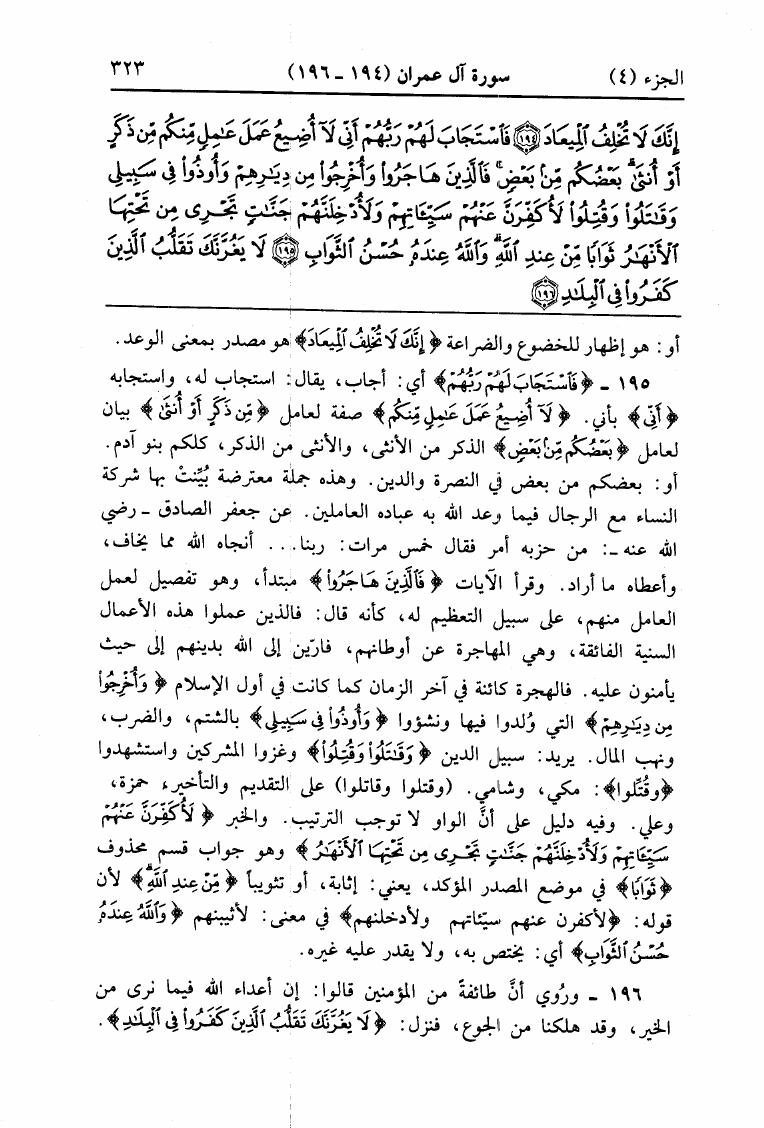 الجزء (٤) سورة آل عمران (١٩٤ - ١٩٦) ٣٢٣
إِنَّكَ لَا تُخْلِفُ ٱلْمِيعَادَ ﴿١٩٤﴾ فَٱسْتَجَابَ لَهُمْ رَبُّهُمْ أَنِّى لَآ أُضِيعُ عَمَلَ عَٰمِلٍ مِّنكُم مِّن ذَكَرٍ
أَوْ أُنثَىٰ ۖ بَعْضُكُم مِّنۢ بَعْضٍ ۖ فَٱلَّذِينَ هَاجَرُوا۟ وَأُخْرِجُوا۟ مِن دِيَٰرِهِمْ وَأُوذُوا۟ فِى سَبِيلِى
وَقَٰتَلُوا۟ وَقُتِلُوا۟ لَأُكَفِّرَنَّ عَنْهُمْ سَيِّـَٔاتِهِمْ وَلَأُدْخِلَنَّهُمْ جَنَّٰتٍ تَجْرِى مِن تَحْتِهَا
ٱلْأَنْهَٰرُ ثَوَابًا مِّنْ عِندِ ٱللَّهِ ۗ وَٱللَّهُ عِندَهُۥ حُسْنُ ٱلثَّوَابِ ﴿١٩٥﴾ لَا يَغُرَّنَّكَ تَقَلُّبُ ٱلَّذِينَ
كَفَرُوا۟ فِى ٱلْبِلَٰدِ ﴿١٩٦﴾
أو: هو إظهار للخضوع والضراعة ﴿إِنَّكَ لَا تُخْلِفُ ٱلْمِيعَادَ﴾ هو مصدر بمعنى الوعد.
١٩٥ - ﴿فَٱسْتَجَابَ لَهُمْ رَبُّهُمْ﴾ أي: أجاب، يقال: استجاب له، واستجابه
﴿أَنِّى﴾ بأني. ﴿لَآ أُضِيعُ عَمَلَ عَٰمِلٍ مِّنكُم﴾ صفة لعامل ﴿مِّن ذَكَرٍ أَوْ أُنثَىٰ﴾ بيان
لعامل ﴿بَعْضُكُم مِّنۢ بَعْضٍ﴾ الذكر من الأنثى، والأنثى من الذكر، كلكم بنو آدم.
أو: بعضكم من بعض في النصرة والدين. وهذه جملة معترضة بُيِّنتْ بها شركة
النساء مع الرجال فيما وعد الله به عباده العاملين. عن جعفر الصادق - رضي
الله عنه -: من حزبه أمر فقال خمس مرات: ربنا... أنجاه الله مما يخاف،
وأعطاه ما أراد. وقرأ الآيات ﴿فَٱلَّذِينَ هَاجَرُوا۟﴾ مبتدأ، وهو تفصيل لعمل
العامل منهم، على سبيل التعظيم له، كأنه قال: فالذين عملوا هذه الأعمال
السنية الفائقة، وهي المهاجرة عن أوطانهم، فارّين إلى الله بدينهم إلى حيث
يأمنون عليه. فالهجرة كائنة في آخر الزمان كما كانت في أول الإسلام ﴿وَأُخْرِجُوا۟
مِن دِيَٰرِهِمْ﴾ التي وُلدوا فيها ونشؤوا ﴿وَأُوذُوا۟ فِى سَبِيلِى﴾ بالشتم، والضرب،
ونهب المال. يريد: سبيل الدين ﴿وَقَٰتَلُوا۟ وَقُتِلُوا۟﴾ وغزوا المشركين واستشهدوا
﴿وقُتِّلوا﴾: مكي، وشامي. (وقتلوا وقاتلوا) على التقديم والتأخير، حمزة،
وعلي. وفيه دليل على أنَّ الواو لا توجب الترتيب. والخبر ﴿لَأُكَفِّرَنَّ عَنْهُمْ
سَيِّـَٔاتِهِمْ وَلَأُدْخِلَنَّهُمْ جَنَّٰتٍ تَجْرِى مِن تَحْتِهَا ٱلْأَنْهَٰرُ﴾ وهو جواب قسم محذوف
﴿ثَوَابًا﴾ في موضع المصدر المؤكد، يعني: إثابة، أو تثويباً ﴿مِّنْ عِندِ ٱللَّهِ ۗ﴾ لأن
قوله: ﴿لأكفرن عنهم سيّئاتهم ولأدخلنهم﴾ في معنى: لأثيبنهم ﴿وَٱللَّهُ عِندَهُۥ
حُسْنُ ٱلثَّوَابِ﴾ أي: يختص به، ولا يقدر عليه غيره.
١٩٦ - ورُوي أنَّ طائفةً من المؤمنين قالوا: إن أعداء الله فيما نرى من
الخير، وقد هلكنا من الجوع، فنزل: ﴿لَا يَغُرَّنَّكَ تَقَلُّبُ ٱلَّذِينَ كَفَرُوا۟ فِى ٱلْبِلَٰدِ﴾.